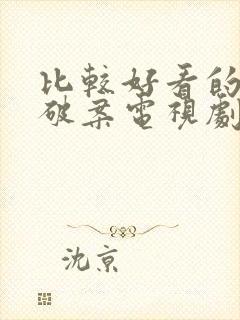 比較好看的
破案電視劇
沈京